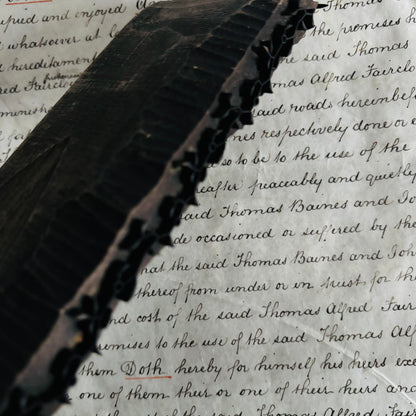 upied and enjoyed
whatsoever at la Thomas
hereditament the promises h
red Fairclou the said Thomas
mas Alfred Fairclo
said roads hereinbef
nes respectively done or e
so to be to the use of the
eafter peaceably and quietly
said Thomas Baines and Jo
de occasioned or suffered by the
hat the said Thomas Baines and Joh
thereof from under or in trust for th
nd cost of the said Thomas Alfred Fair
remises to the use of the said Thomas Alf
them Doth hereby for himself his heirs exe
one of them their or one of their heirs and
the said Thomas Alfred Fair